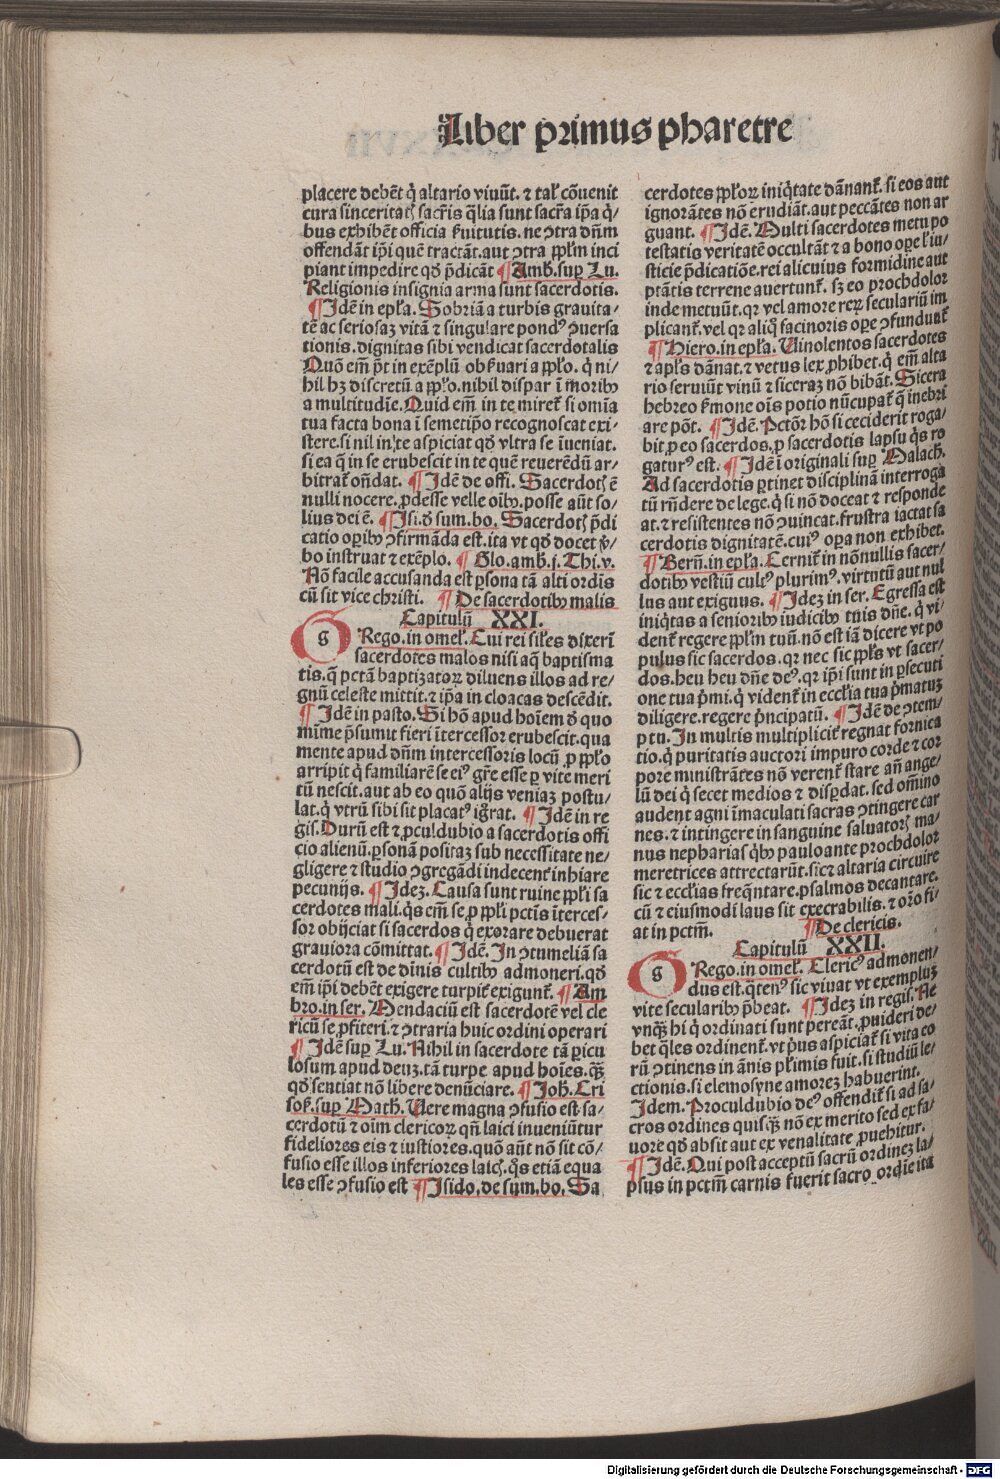 Liber primus pharetre
placere debēt q̇ altario viuūt. ⁊ tal̓ cōuenit
cura sinceritatꝭ sacr̄is q̄lia sunt sacr̄a ip̄a q̇/
bus exhibēt officia ẜuitutis. ne ꝯtra dn̄m
offendāt ip̄i quē tractāt. aut ꝯtra ppl̓m inci
piant impedire qd̓ p̄dicāt ¶ Amb̓. suꝑ Lu.
Religionis insignia arma sunt sacerdotis.
¶ Idē in epl̓a. Sobriā a turbis grauita/
tē ac seriosaꝫ vitā ⁊ singulare pondꝰ ꝯuersa
tionis. dignitas sibi vendicat sacerdotalis
Quō em̄ p̄t in exēplū obẜuari a ppl̓o. q̇ ni/
hil hꝫ discretū a ppl̓o. nihil dispar ī moribꝰ
a multitudīe. Quid em̄ in te miret᷑ si om̄ia
tua facta bona ī semetip̄o recognoscat exi/
stere. si nil in te aspiciat qd̓ vltra se īueniat.
si ea q̄ in se erubescit in te quē reuerēdū ar/
bitrat᷑ on̄dat. ¶ Idē de offi. Sacerdotꝭ ē
nulli nocere. ꝓdesse velle oībꝰ. posse aūt so/
lius dei ē. ¶ Isi. d̓ sum. bo. Sacerdotꝭ p̄di
catio oꝑibꝰ ꝯfirmāda est. ita vt qd̓ docet v̓/
bo instruat ⁊ exēplo. ¶ Glo. amb̓. j. Thi. v.
Nō facile accusanda est ꝑsona tā alti ordis
cū sit vice christi. ¶ De sacerdotibꝰ malis
Capitulū XXI.
GRego. in omel̓. Cui rei sil̓es dixerī
sacerdotes malos nisi aq̄ baptisma
tis. q̄ pctā baptizatoꝝ diluens illos ad re/
gnū celeste mittit. ⁊ ip̄a in cloacas descēdit.
¶ Idē in pasto. Si hō apud hoīem d̓ quo
mīme p̄sumit fieri ītercessor erubescit. qua
mente apud dn̄m intercessoris locū ꝓ ppl̓o
arripit q̇ familiarē se eiꝰ gr̄e esse ꝑ vite meri
tū nescit. aut ab eo quō alijs veniaꝫ postu/
lat. q̇ vtrū sibi sit placatꝰ igr̄at. ¶ Idē in re
gis. Durū est ⁊ ꝓculdubio a sacerdotis offi
cio alienū. ꝑsonā positaꝫ sub necessitate ne/
gligere ⁊ studio ꝯgregādi indecent᷑ inhiare
pecunijs. ¶ Ideꝫ. Causa sunt ruine ppl̓i sa
cerdotes mali. q̇s em̄ se ꝓ ppl̓i pctīs īterces/
sor obijciat si sacerdos q̇ exorare debuerat
grauiora cōmittat. ¶ Idē. In ꝯtumeliā sa
cerdotū est de diuīs cultibꝰ admoneri. qd̓
em̄ ip̄i debēt exigere turpit᷑ exigunt᷑. ¶ Am
bro. in ser. Mendaciū est sacerdotē vel cle
ricū se ꝓfiteri. ⁊ ꝯtraria huic ordini operari
¶ Idē suꝑ Lu. Nihil in sacerdote tā ꝑicu
losum apud deuꝫ. tā turpe apud hoīes. q̄ꝫ
qd̓ sentiat nō libere denūciare. ¶ Joh̓. Cri
sos̓. suꝑ Math̓. Uere magna ꝯfusio est sa/
cerdotū ⁊ oīm clericoꝝ qn̄ laici inueniūtur
fideliores eis ⁊ iustiores. quō aūt nō sit cō/
fusio esse illos inferiores laicꝭ. q̇s etiā equa
les esse ꝯfusio est ¶ Isido. de sum. bo. Sa
cerdotes ppl̓oꝝ iniq̇tate dānant᷑. si eos aut
ignorātes nō erudiāt. aut peccātes non ar
guant. ¶ Idē. Multi sacerdotes metu po
testatis veritatē occultāt ⁊ a bono oꝑe l̓ iu/
sticie p̄dicatiōe. rei alicuius formidine aut
ptātis terrene auertunt᷑. sꝫ eo prochdolor
inde metuūt. qꝛ vel amore reꝝ seculariū im
plicant᷑. vel qꝛ aliq̄ facinoris oꝑe ꝯfundunt᷑
¶ Hiero. in epl̓a. Uinolentos sacerdotes
⁊ apl̓s dānat. ⁊ vetus lex ꝓhibet. q̇ em̄ alta
rio seruiūt vinū ⁊ siceraꝫ nō bibāt. Sicera
hebreo ẜmone oīs potio nūcupat᷑ q̄ inebri
are pōt. ¶ Idē. Pctōr hō si ceciderit roga/
bit ꝓ eo sacerdos. ꝓ sacerdotis lapsu q̇s ro
gaturꝰ est. ¶ Idē ī originali suꝑ Malach̓.
Ad sacerdotis ꝑtinet disciplinā interroga
tū rn̄dere de lege. q̇ si nō doceat ⁊ responde
at. ⁊ resistentes nō ꝯuincat. frustra iactat sa
cerdotis dignitatē. cuiꝰ oꝑa non exhibet.
¶ Bern̄. in epl̓a. Cernit᷑ in nōnullis sacer/
dotibꝰ vestiū cultꝰ plurimꝰ. virtutū aut nul
lus aut exiguus. ¶ Ideꝫ in ser. Egressa est
iniq̇tas a senioribꝰ iudicibꝰ tuis dn̄e. q̇ vi/
dent᷑ regere ppl̓m tuū. nō est iā dicere vt po
pulus sic sacerdos. qꝛ nec sic ppl̓s vt sacer/
dos. heu heu dn̄e deꝰ. qꝛ ip̄i sunt in ꝑsecuti
one tua p̄mi. q̇ vident᷑ in eccl̓ia tua p̄matuꝫ
diligere. regere p̄ncipatū. ¶ Idē de ꝯtem/
ptu. In multis multiplicit᷑ regnat fornica
tio. q̇ puritatis auctori impuro corde ⁊ cor
pore ministrātes nō verent᷑ stare an̄ ange/
lū dei q̇ secet medios ⁊ disꝑdat. sed om̄ino
audent agni īmaculati sacras ꝯtingere car
nes. ⁊ intingere in sanguine saluatorꝭ ma/
nus nepharias q̇bꝰ pauloante prochdolor
meretrices attrectarūt. sicꝫ altaria circuire
sic ⁊ eccl̓ias freq̄ntare. psalmos decantare.
cū ⁊ eiusmodi laus sit execrabilis. ⁊ or̄o fi/
at in pctm̄. ¶ De clericis.
Capitulū XXII.
GRego. in omel̓. Clericꝰ admonen/
dus est. q̄tenꝰ sic viuat vt exempluꝫ
vite secularibꝰ p̄beat. ¶ Ideꝫ in regis. Ne
vnq̄ꝫ hi q̇ ordinati sunt pereāt. ꝓuideri de/
bet q̄les ordinent᷑. vt p̓us aspiciat᷑ si vita eo
rū ꝯtinens in ānis pl̓imis fuit. si studiū le/
ctionis. si elemosyne amoreꝫ habuerint.
Idem. Proculdubio deꝰ offendit᷑ si ad sa/
cros ordines quisq̄ꝫ nō ex merito sed ex fa/
uore qd̓ absit aut ex venalitate ꝓuehitur.
¶ Idē. Qui post acceptū sacrū ordineꝫ la/
psus in pctm̄ carnis fuerit sacro ordīe ita
Digitalisierung gefördert durch die Deutsche Forschungsgemeinschaft - DFG